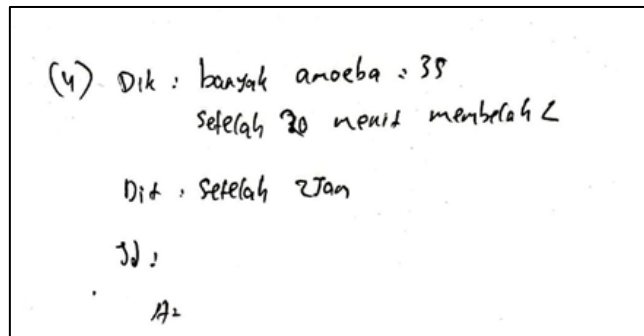 (4) Dik : banyak amoeba : 35
setelah 20 menit membelah 2
Dit : setelah 2 Jam
Jd :
A=